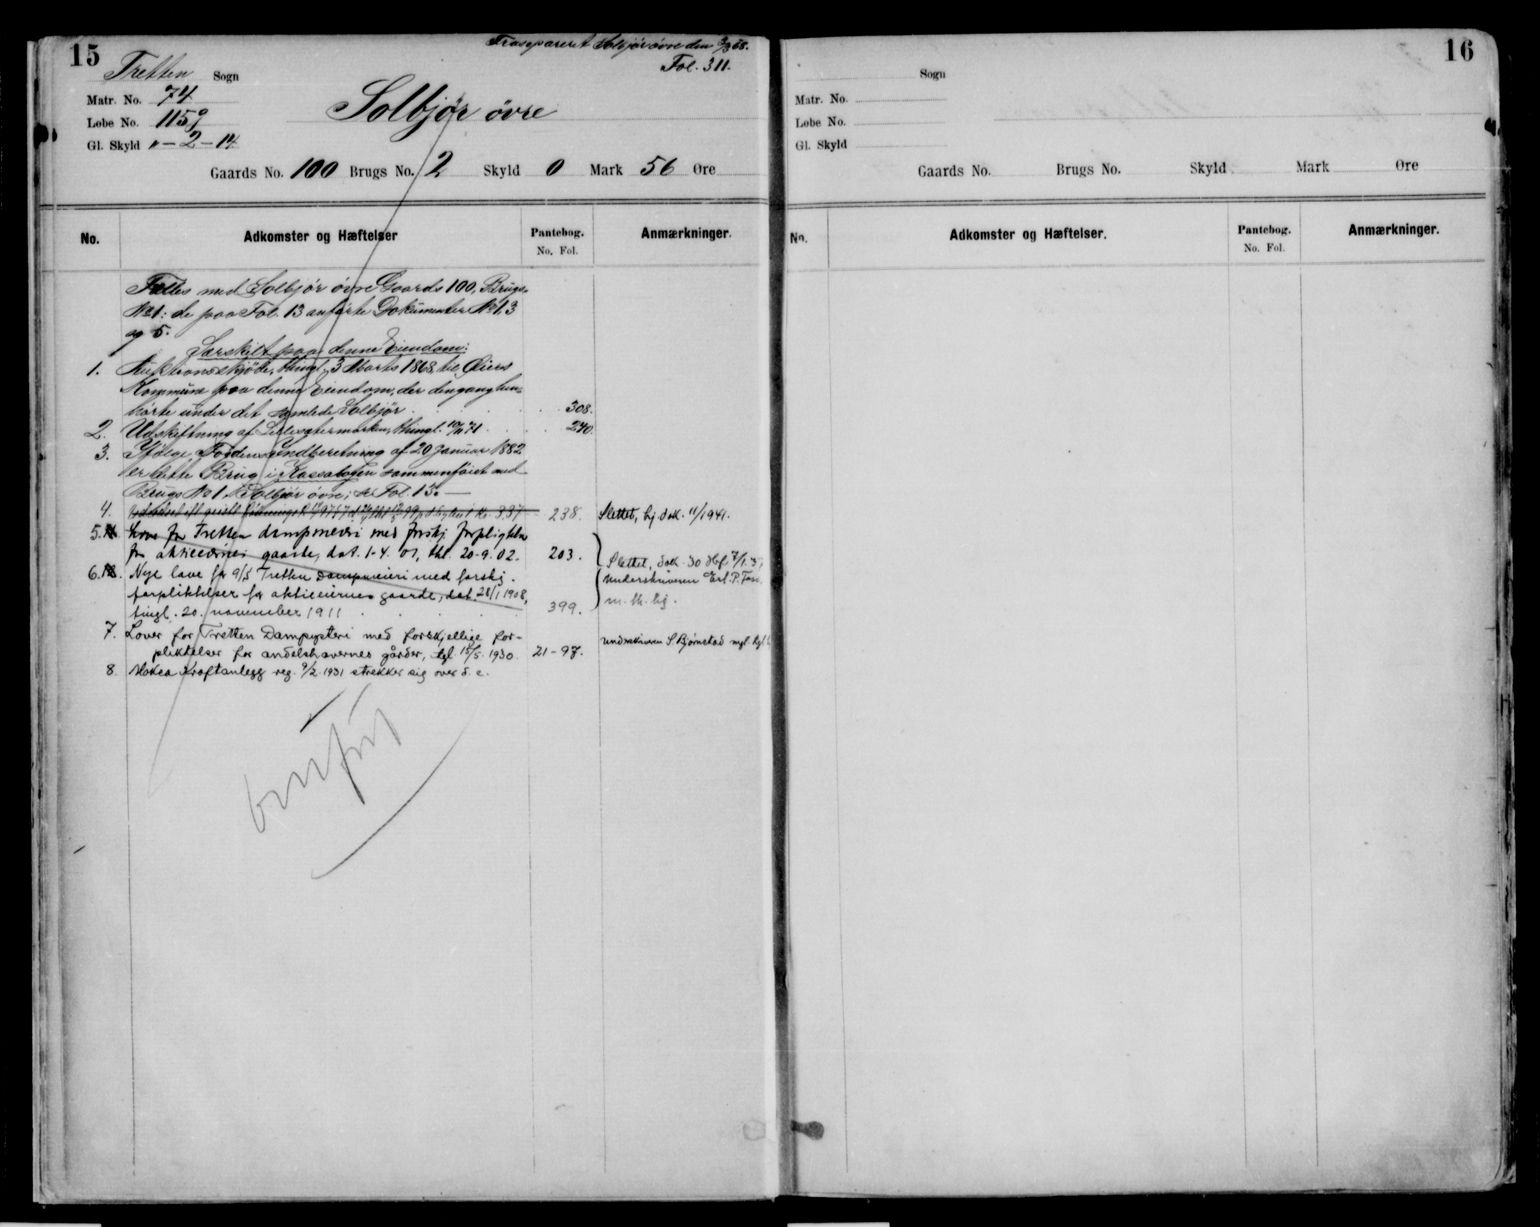 15
Tretten Sogn
Matr. No. 74
Løbe No. 115g
Gl. Skyld " - 2 - 14
Solbjør øvre den
Fol. 311.
Solbjør øvre
Gaards No. 100 Brugs No. 2 Skyld 0 Mark 56 Øre
No. Adkomster og Hæftelser Pantebog. No. Fol. Anmærkninger.
Fælles med Solbjør øvre Gaards 100, Brugs-
No 1: de paa Fol. 13 anførte Dokumenter No 1, 3
og 5.
Særskilt paa denne Eiendom:
1. Auktionsskjøde, thingl. 3 Marts 1868 til Øiers
Kommune paa denne Eiendom, der dengang hen-
hørte under det samlede Solbjør 308.
2. Udskiftning af thingl. 10/11 71 240
3. Ifølge Fogdens Indberetning af 20 Januar 1882
er dette Brug i Kassabogen sammenføiet med
Brugs No 1 Solbjør øvre, se Fol 13.
4. 238. Slettet, kj. dok. 11/1941.
5. Love for Tretten dampmeieri med forskj. forpligtelser
for aktieeiernes gaarde, dat. 1-4. 01, thl. 20-9. 02. 203. Slettet, dok. 30 7/1.
6. Nye love for a/s Tretten dampmeieri med forskj.
forpliktelser for aktieeiernes gaarde, dat. 28/1 1908,
tingl. 20. november 1911 399. underskriveren Erl. P.
m. th. kj.
7. Lover for Tretten Dampysteri med forskjellige for-
pliktelser for andelshavernes gårder, tgl. 15/5. 1930. 21-97. underskriveren S. Bjørnstad mgl. hjl.
8. Moksa Kraftanlegg reg. 9/2. 1931 strekker sig over d. e.
16
Sogn
Matr. No.
Løbe No.
Gl. Skyld
Gaards No. Brugs No. Skyld Mark Øre
No. Adkomster og Hæftelser. Pantebog. No. Fol. Anmærkninger.